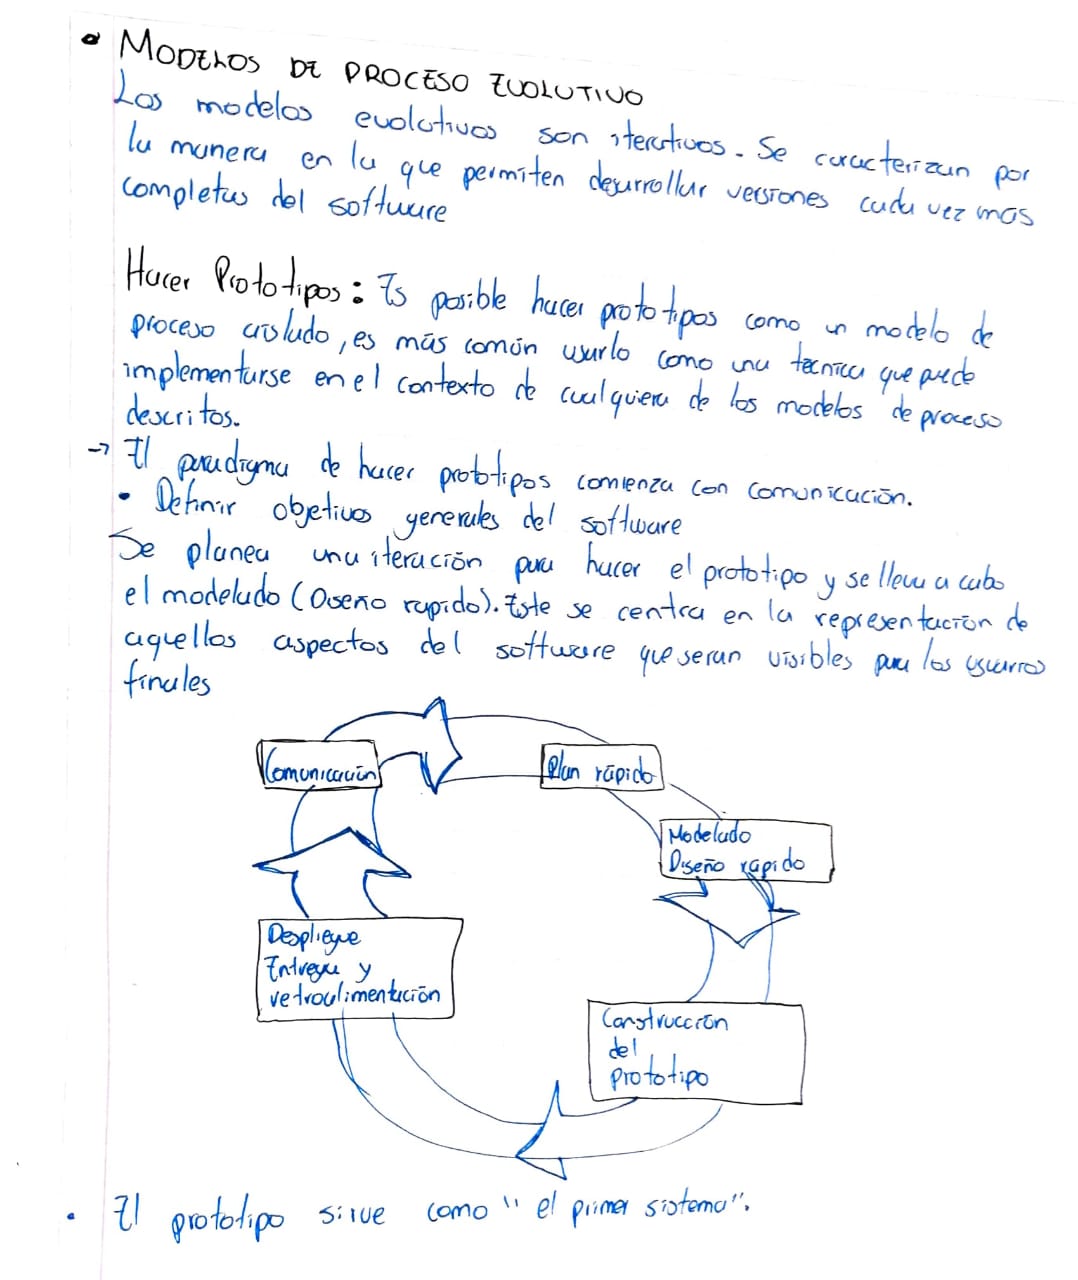 • MODELOS DE PROCESO EVOLUTIVO
Los modelos evolutivos son iterativos. Se caracterizan por
la manera en la que permiten desarrollar versiones cada vez más
completas del software
Hacer Prototipos: Es posible hacer prototipos como un modelo de
proceso aislado, es más común usarlo como una técnica que puede
implementarse en el contexto de cualquiera de los modelos de proceso
descritos.
→ El paradigma de hacer prototipos comienza con comunicación.
• Definir objetivos generales del software
Se planea una iteración para hacer el prototipo y se lleva a cabo
el modelado (Diseño rapido). Este se centra en la representación de
aquellos aspectos del software que seran visibles para los usuarios
finales
Comunicación
Plan rápido
Modelado
Diseño rápido
Despliegue
Entrega y
retroalimentación
Construcción
del
prototipo
• El prototipo sirve como "el primer sistema".